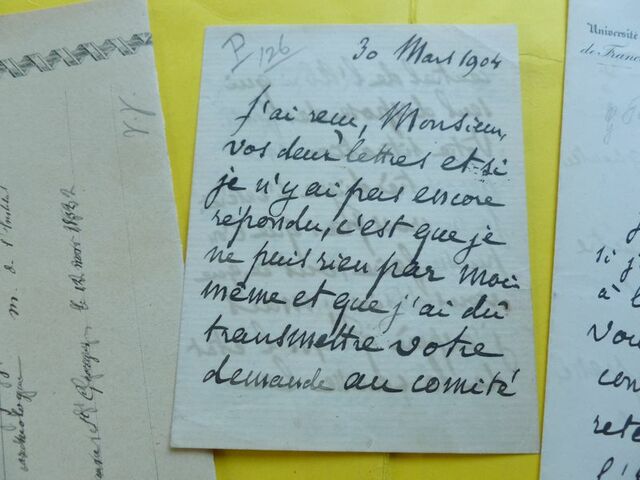 m. de l'Institut
P 126
30 Mars 1904
J'ai reçu, Monsieur,
vos deux lettres et si
je n'y ai pas encore
répondu, c'est que je
ne puis rien par moi
même et que j'ai dû
transmettre votre
demande au comité
Université
de France
si j
à l
vou
con
rete
l'